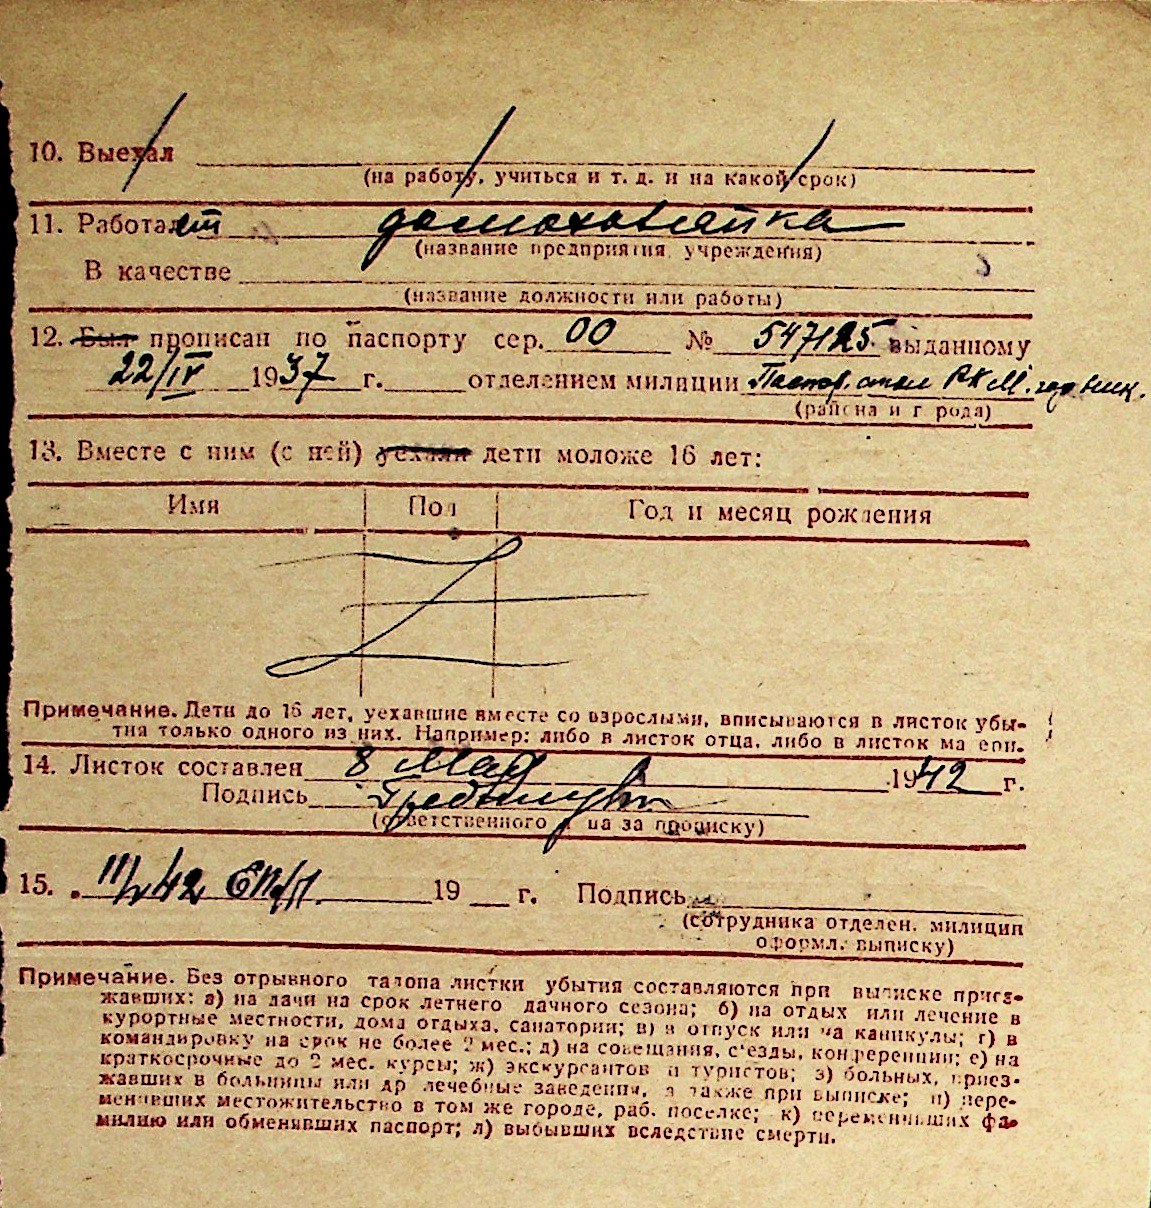 10. Выехал
(на работу, учиться и т. д. и на какой срок)
11. Работает домохозяйка
(название предприятия учреждения)
В качестве
(название должности или работы)
12. Был прописан по паспорту сер. 00 № 547125 выданному
22/IV 1937 г. отделением милиции Паспор. стол РКМ. гор
(района и города)
13. Вместе с ним (с ней) уехали дети моложе 16 лет:
Имя Пол Год и месяц рождения
Примечание. Дети до 16 лет, уехавшие вместе со взрослыми, вписываются в листок убы-
тия только одного из них. Например: либо в листок отца, либо в листок матери.
14. Листок составлен 8 Мая 1942 г.
Подпись
(ответственного лица за прописку)
15. 42 19 г. Подпись
(сотрудника отделен. милиции
оформл. выписку)
Примечание. Без отрывного талона листки убытия составляются при выписке приез-
жавших: а) на дачи на срок летнего дачного сезона; б) на отдых или лечение в
курортные местности, дома отдыха, санатории; в) в отпуск или на каникулы; г) в
командировку на срок не более 2 мес.; д) на совещания, съезды, конференции; е) на
краткосрочные до 2 мес. курсы; ж) экскурсантов и туристов; з) больных, приез-
жавших в больницы или др лечебные заведения, а также при выписке; и) пере-
менивших местожительство в том же городе, раб. поселке; к) переменивших фа-
милию или обменявших паспорт; л) выбывших вследствие смерти.